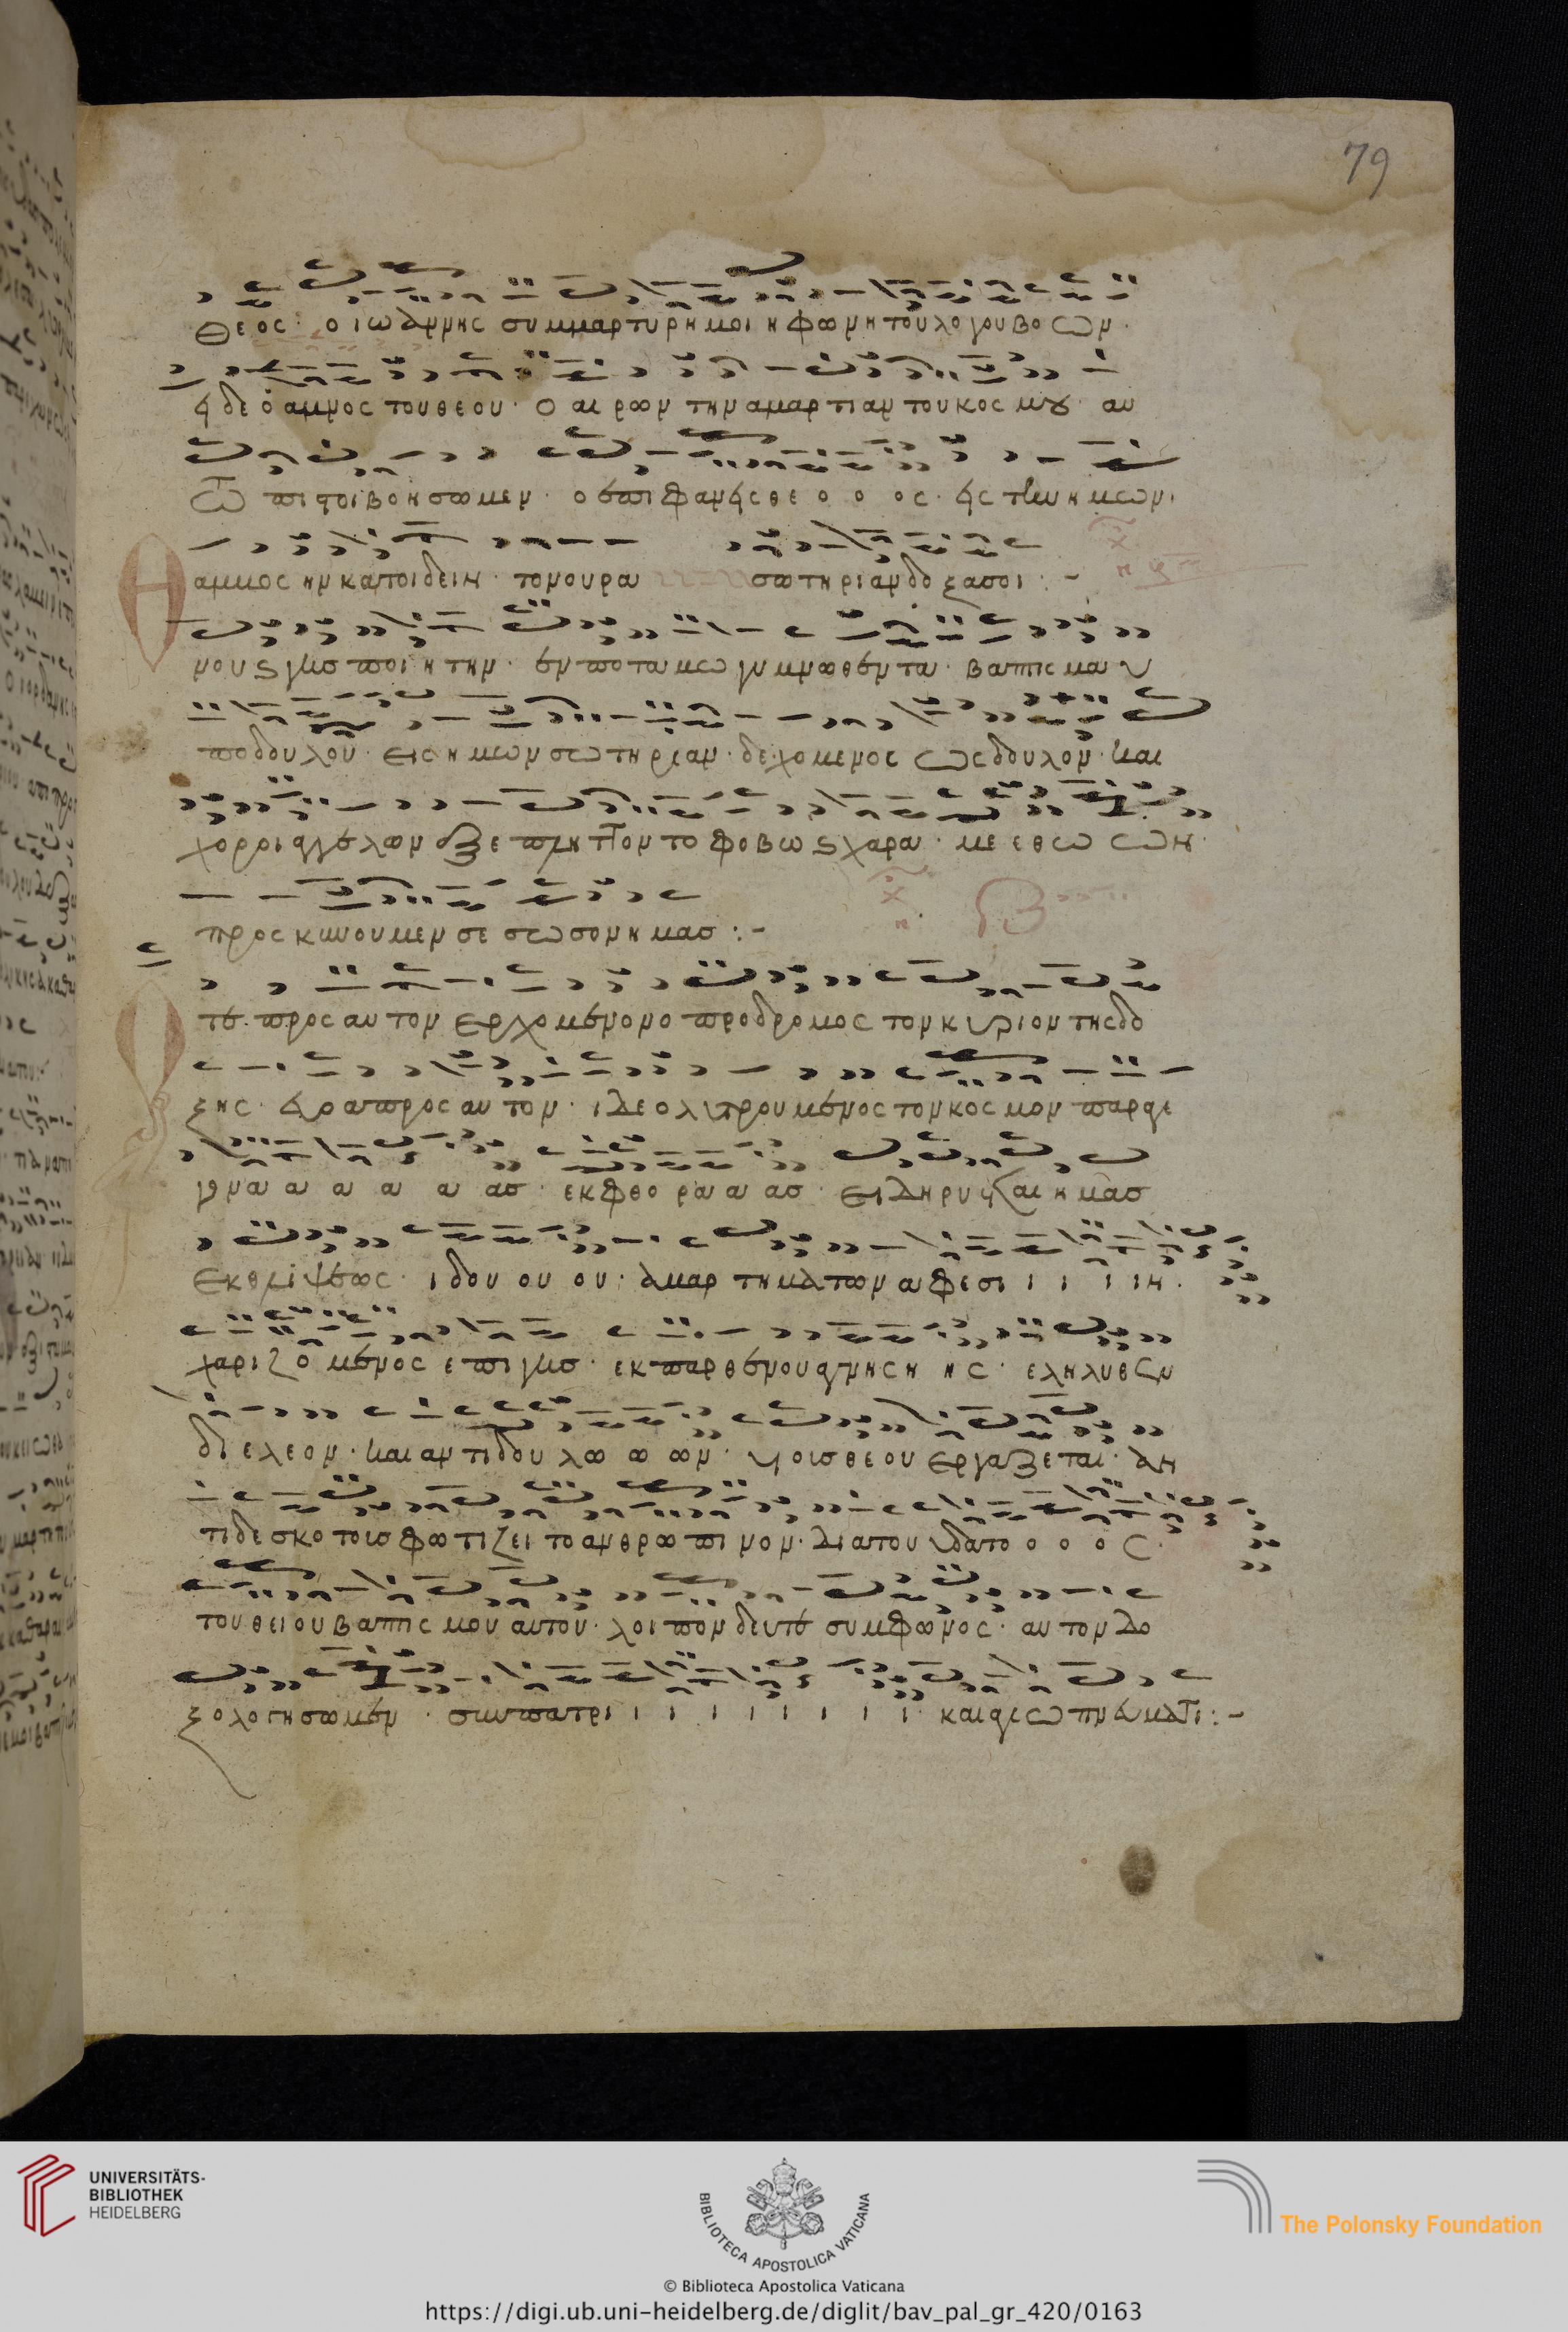 79
θεος· ο ιωαννης συμμαρτυρη μοι η φωνη του λογου βοων·
ιδε ο αμνος του θεου· ο αιρων την αμαρτιαν του κοσμου· αυ
τω πιστοι βοησωμεν· ο επιφανεις θε ο ο ος· εις την ημων·
αμμος ην κατοιδειν· τον ουρα σωτηριαν δοξα σοι :-
νου ϛ γης ποιητην· εν ποταμω γυμνωθεντα· βαπτισμα υ
πο δουλου· εις ημων σωτηριαν· δεχομενος ως δουλον· και
χοροι αγγελων εξεπληττοντο φοβω ϛ χαρα· με εθ ω ων·
προσκυνουμεν σε σωσον ημας :-
τε προς αυτον ερχομενον ο προδρομος τον κυριον της δο
ξης· εβοα προς αυτον· ιδε ο λυτρουμενος τον κοσμον παραγε
γινα α α α α ας· εκ φθο ρα α ας· ει δη ρυσαι ημας
εκ θλιψεως· ιδου ου ου· αμαρτηματων αφεσι ι ι ι ιν·
χαριζομενος επι γης· εκ παρθενου αγνης η ης· εληλυθεν
δι ελεον· και αντι δουλω ω ων· υιους θεου εργαζεται· αν
τι δε σκοτους φωτιζει το ανθρωπινον· δια του υδατο ο ο ο ς·
του θειου βαπτισμου αυτου· λοιπον δευτε συμφωνος· αυτον δο
ξολογησωμεν· συν πατρι ι ι ι ι ι ι ι ι· και αγιω πνευματι :-
UNIVERSITÄTS-
BIBLIOTHEK
HEIDELBERG
BIBLIOTECA APOSTOLICA VATICANA
The Polonsky Foundation
© Biblioteca Apostolica Vaticana
https://digi.ub.uni-heidelberg.de/diglit/bav_pal_gr_420/0163